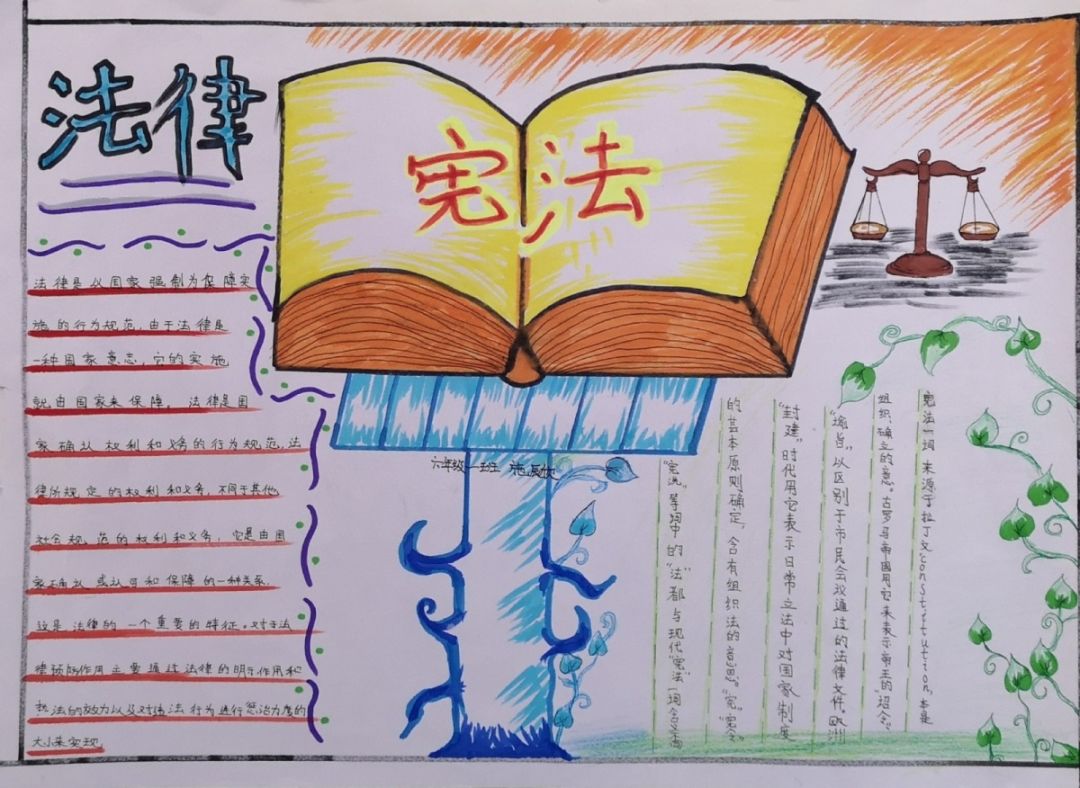 法律
宪法
法律是以国家强制为保障实
施的行为规范,由于法律是
一种国家意志,它的实施
就由国家来保障,法律是国
家确认权利和义务的行为规范,法
律所规定的权利和义务,不同于其他
社会规范的权利和义务,它是由国
家确认或认可和保障的一种关系
这是法律的一个重要的特征。对于法
律预防作用主要通过法律的明示作用和
执法的效力以及对违法行为进行惩治力度的
大小来实现
六年级一班 施
宪法一词来源于拉丁文"constitution,本是
组织,确立的意。古罗马帝国用它来表示帝王的"诏令"
"谕旨",以区别于市民会议通过的法律文件。欧洲
"封建"时代用它表示日常立法中对国家制度
的基本原则确定,含有组织法的意思。"宪","宪令"
"宪法"等词中的"法"都与现代"宪法"一词含